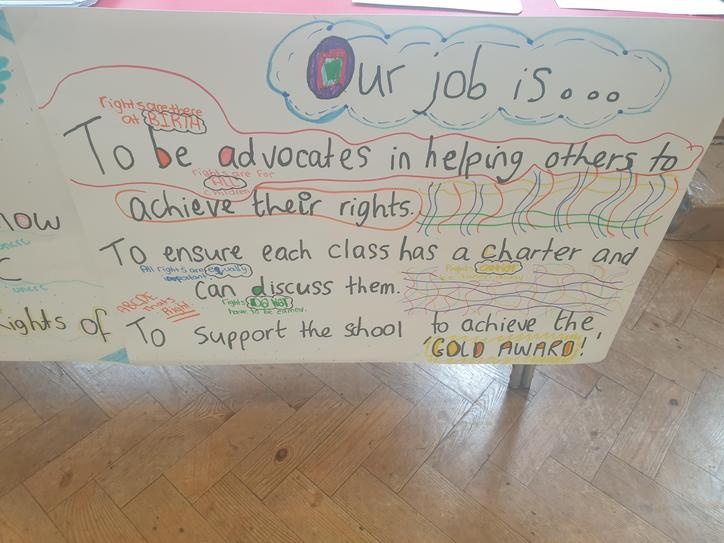 Our job is...
rights are there
at BIRTH
To be advocates in helping others to
rights are for
ALL
children
achieve their rights.
now
To ensure each class has a charter and
All rights are equally
important
Rights cannot
can discuss them.
C
uncrc
ABCDE
that's
Right!
rights DO NOT
have to be earned.
Rights of
To support the school to achieve the
'GOLD AWARD!'